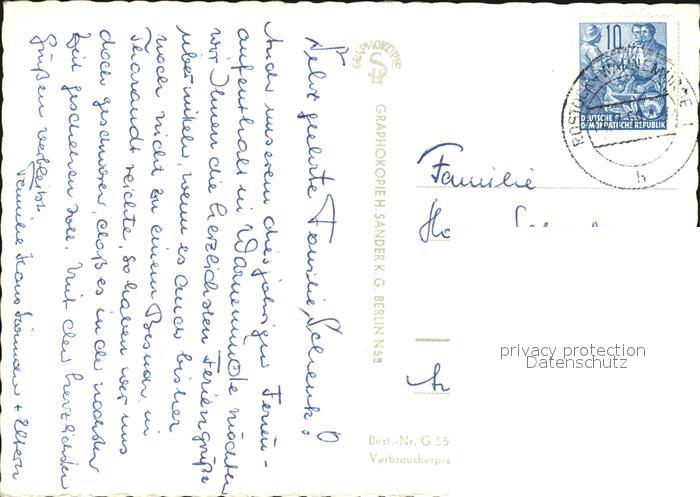 Sehr geehrte Familie Schenk!
Auch unserem diesjährigen Ferien-
aufenthalt in Warnemünde möchten
wir Ihnen die herzlichsten Feriengrüße
übermitteln, wenn es auch bisher
noch nicht zu einem Besuch in
Tharandt reichte, so haben wir uns
doch geschworen, daß es in der nächsten
Zeit geschehen soll. Mit den herzlichsten
Grüßen verbleibt
Familie Hans + Eltern
GRAPHOKOPIE
GRAPHOKOPIE H. SANDER K.G. BERLIN N 58
10
DEUTSCHE
DEMOKRATISCHE REPUBLIK
ROSTOCK-WARNEMÜNDE 1
h
Familie
privacy protection
Datenschutz
Best.-Nr. G 55
Verbraucherpre